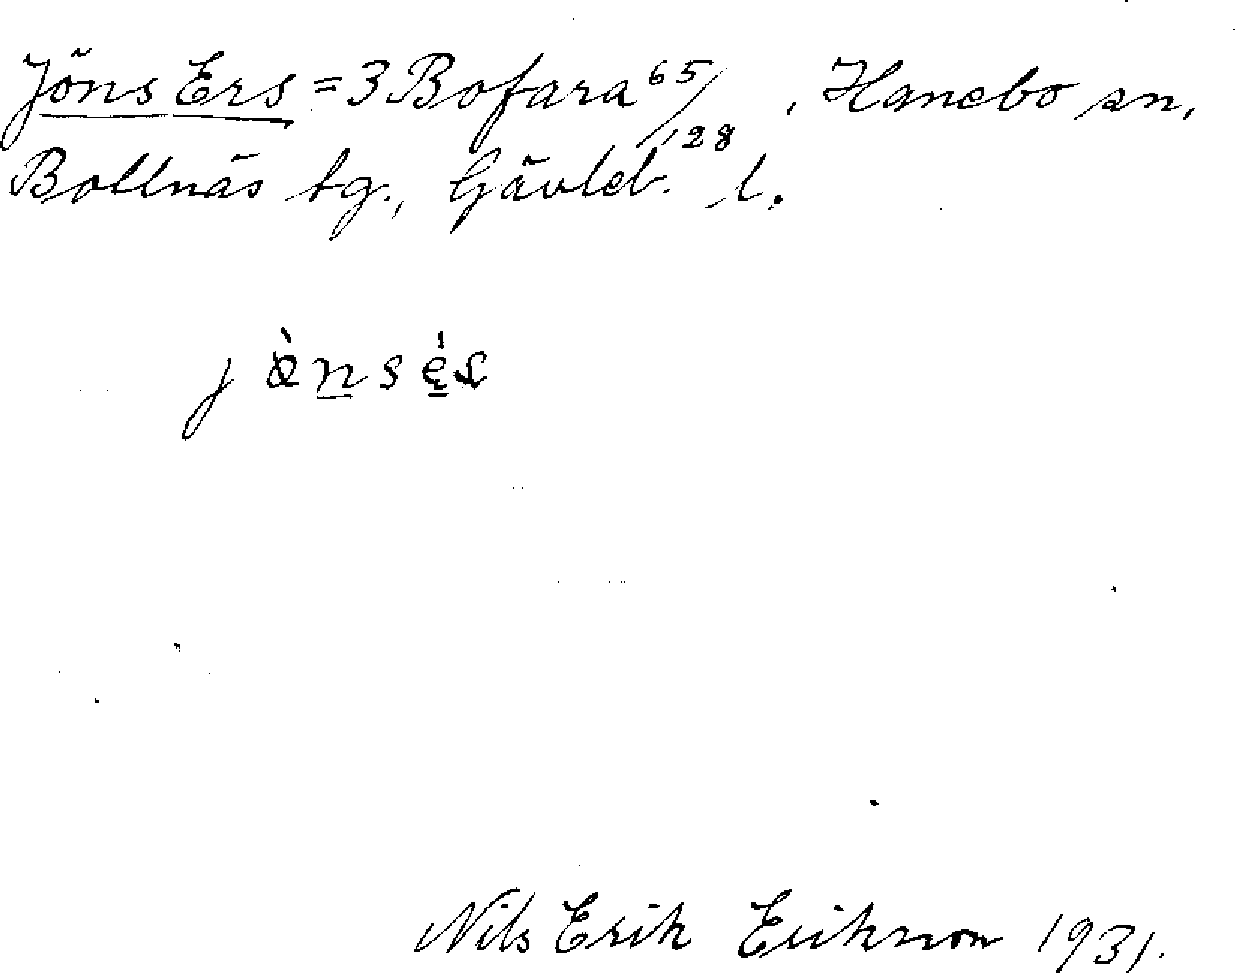 Jöns Ers = 3 Bofara 65/128, Hanebo sn,
Bollnäs tg., Gävleb. l.
Nils Erik Eriksson 1931.